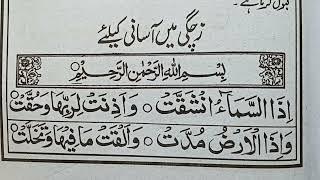 قبول کرتا ہے۔
زچگی میں آسانی کیلئے
بِسْمِ اللهِ الرَّحْمٰنِ الرَّحِيْمِ
اِذَا السَّمَآءُ انْشَقَّتْ ○ وَاَذِنَتْ لِرَبِّهَا وَحُقَّتْ ○
وَاِذَا الْاَرْضُ مُدَّتْ ○ وَاَلْقَتْ مَا فِيْهَا وَتَخَلَّتْ ○